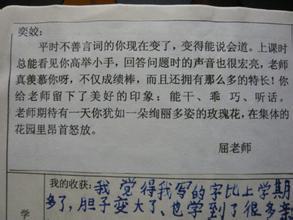 奕姣：
平时不善言词的你现在变了，变得能说会道。上课时
总能看见你高举小手，回答问题时的声音也很宏亮，老师
真羡慕你呀，不仅成绩棒，而且还拥有那么多的特长！你
给老师留下了美好的印象：能干、乖 巧、听话。
老师期待有一天你犹如一朵绚丽多姿的玫瑰花，在集体的
花园里昂首怒放。
屈老师
学
我的收获：我觉得我写的字比上学期
多了，胆子变大了、也学到了很多